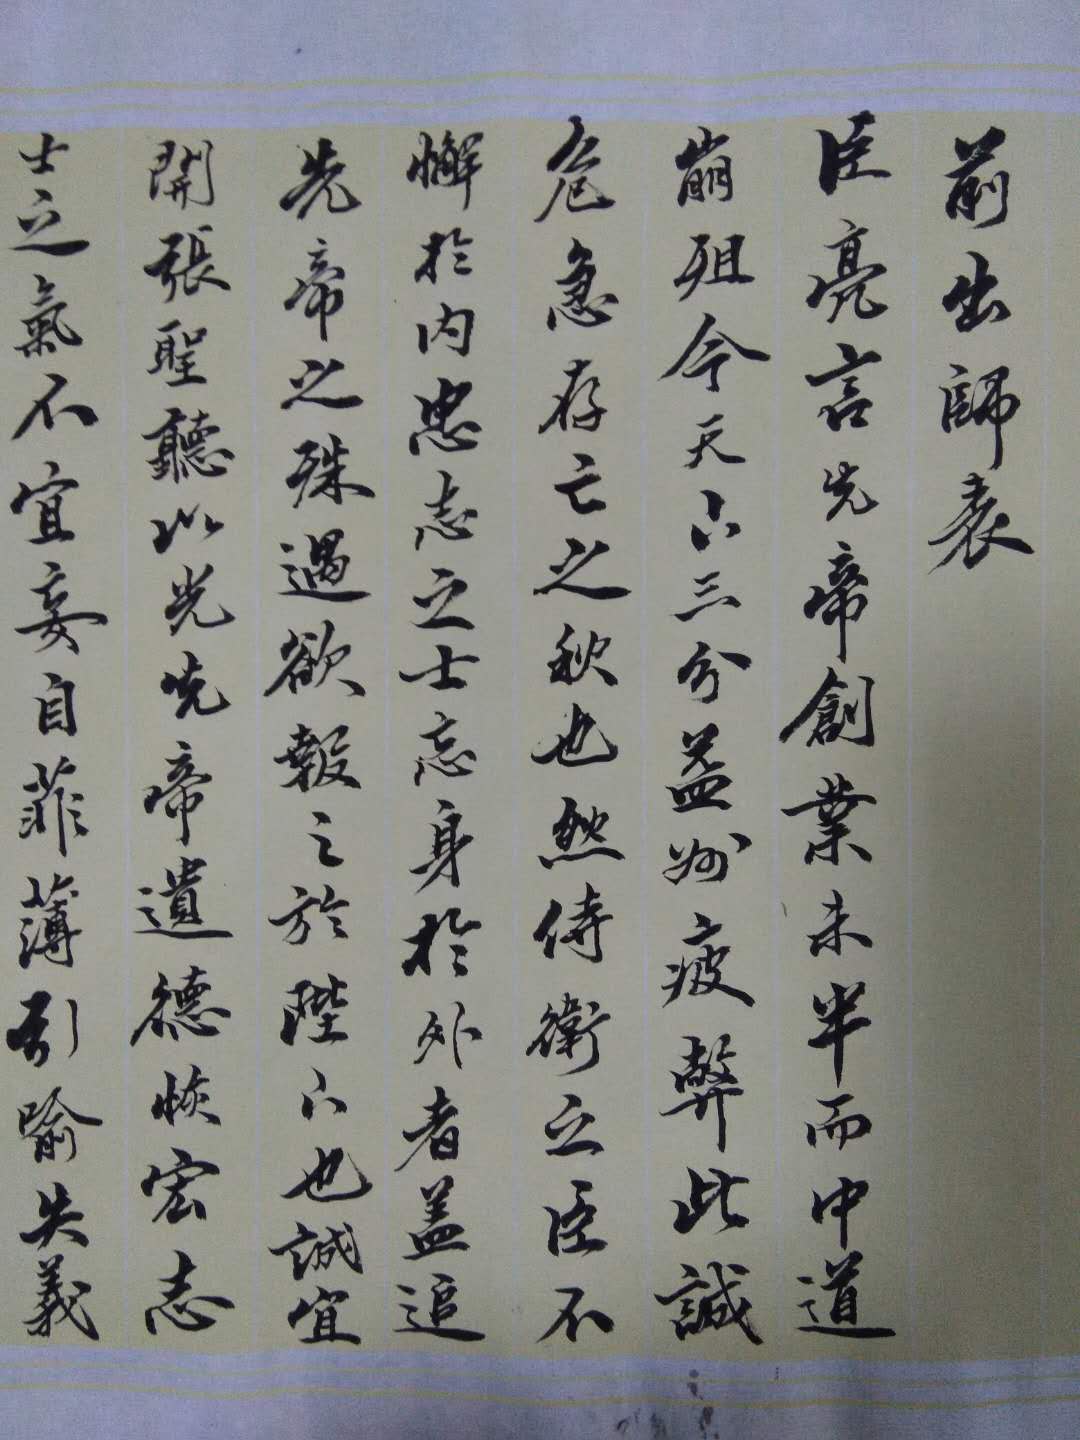 前出師表
臣亮言先帝創業未半而中道
崩殂今天下三分益州疲弊此誠
危急存亡之秋也然侍衛之臣不
懈於内忠志之士忘身於外者盖追
先帝之殊遇欲報之於陛下也誠宜
開張聖聽以光先帝遺德恢宏志
士之氣不宜妄自菲薄引喻失義